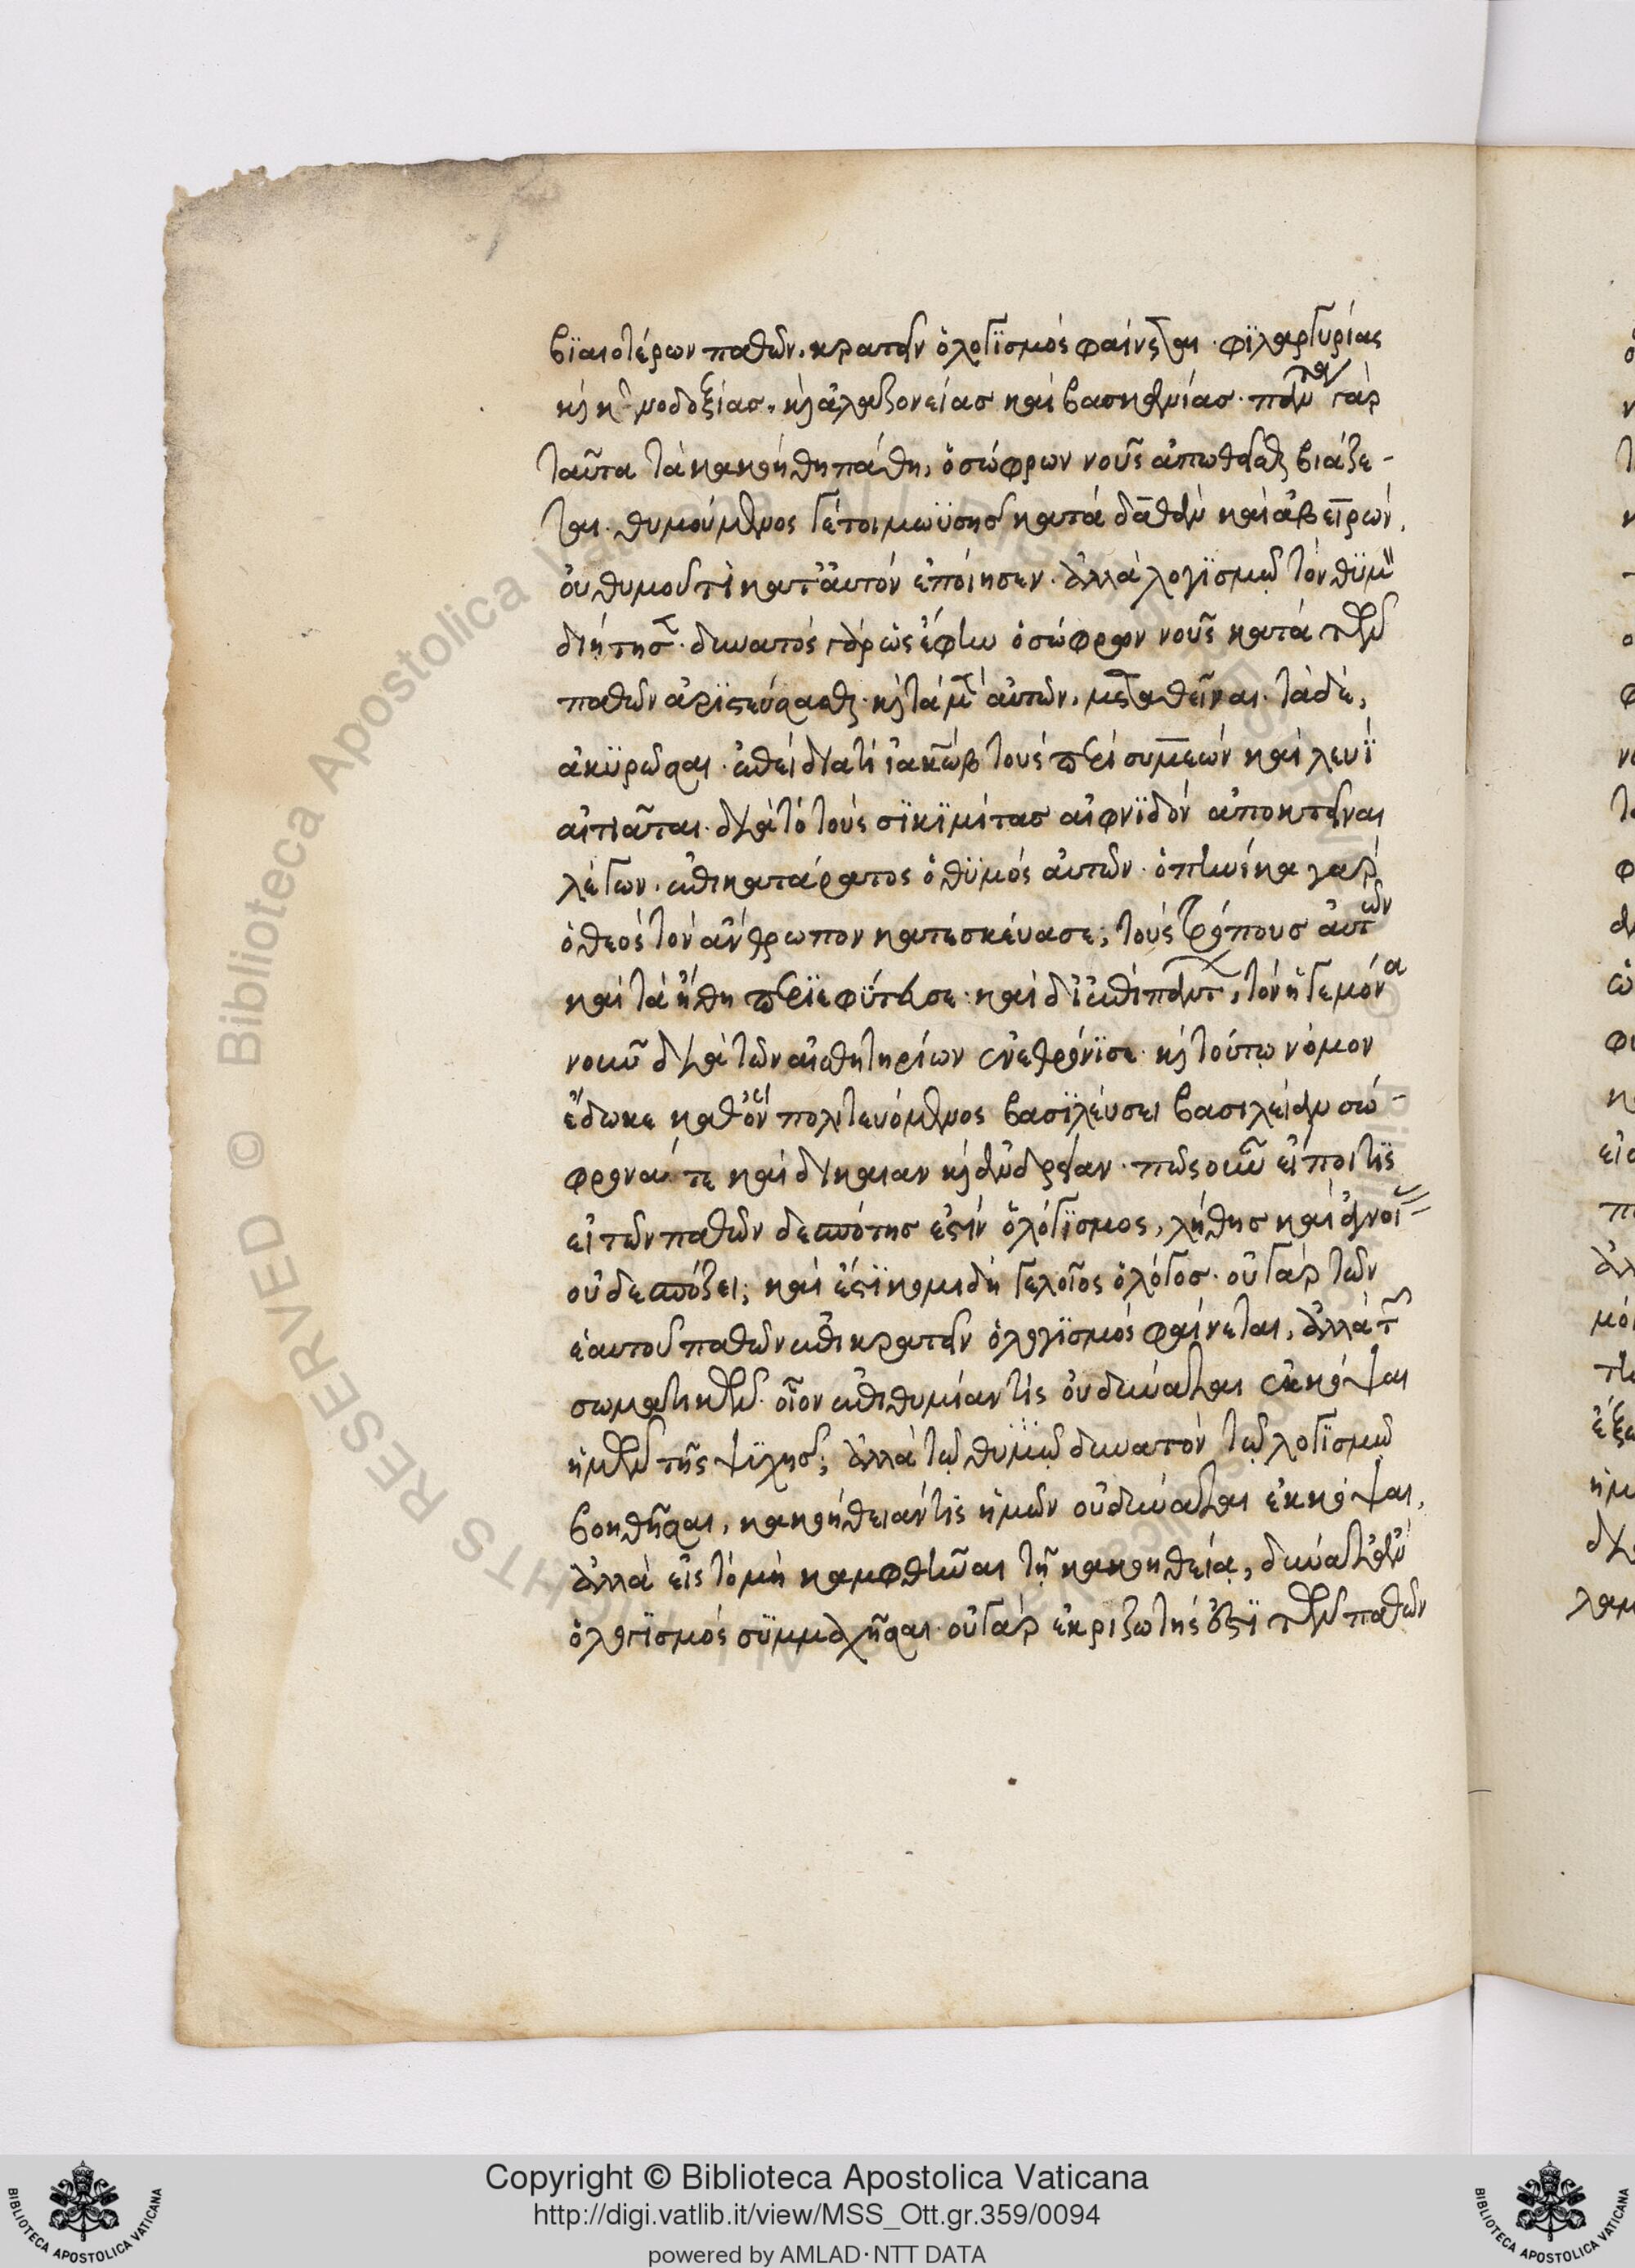 βϊαιοτέρων παθῶν. κρατεῖν ὁ λογϊσμός φαίνεται · φϊλαργυρίας
κ κενοδοξίας. κ ἀλαζονείας καὶ βασκανίας. πάντα γὰρ
ταῦτα τὰ κακοήθη πάθη, ὁ σώφρων νοῦς ἀπωθεῖται βιάζε-
ται. θυμούμενος γέ τοι μωϋσῆς κατά δαθάν καὶ ἀβειρών.
οὐ θυμοῦ τὶ κατ' ἀυτόν ἐποίησεν. ἀλλὰ λογϊσμῷ τόν θϋμὸν
διήτησε. δυνατός γὰρ ὡς ἔφην ὁ σώφρων νοῦς κατά τῶν
παθῶν ἀρϊστεύσασθαι. κ τὰ μετ' ἀυτῶν. μεταθεῖναι. τὰ δὲ,
ἀκϋρῶσαι. ἐπεί διατί ἰακώβ τοὺς περὶ συμεών καὶ λευΐ
αἰτιᾶται. διὰ τὸ τοὺς σϊκϊμίτας αἰφνϊδόν ἀποκτεῖναι
λέγων. ἐπικατάρατος ὁ θϋμός ἀυτῶν. ὁπηνίκα γὰρ
ὁ θεός τόν ἄνθρωπον κατεσκέυασε; τοὺς τρόπους ἀυτῶν
καὶ τὰ ἤθη περϊεφϋτευσε. καὶ δϊ ἐπὶ πάντων, τόν ἡγεμόνα
νοῦν διὰ τῶν αἰσθητηρίων ἐνεθρόνϊσε. κ τούτῳ νόμον
ἔδωκε καθ' ὅν πολιτευόμενος βασϊλέυσει βασιλείαν σώ-
φρονά τε καὶ δικαιαν κ ἀνδρείαν. πῶς οὖν εἴποι τϊς
εἰ τῶν παθῶν δεσπότης ἐστίν ὁ λόγϊσμος, λήθης καὶ ἀγνοίας
οὐ δεσπόζει; καὶ ἐστϊ κομιδῇ γελοῖος ὁ λόγος. οὐ γὰρ τῶν
ἑαυτοῦ παθῶν ἐπικρατεῖν ὁ λογϊσμός φαίνεται, ἀλλὰ τῶν
σωματικῶν. οἷον ἐπιθυμίαν τὶς οὐ δύναται ἐκκόψαι
ἡμῶν τῆς ψϋχῆς; ἀλλὰ τῷ θυμῷ δυνατόν τῷ λογϊσμῷ
βοηθῆσαι, κακοήθειάν τὶς ἡμῶν οὐ δύναται ἐκκόψαι,
ἀλλὰ εἰς τὸ μὴ καμφθῆναι τῇ κακοηθείᾳ, δύναιτ' ἄν
ὁ λογϊσμός σϋμμαχῆσαι. οὐ γὰρ ἐκριζωτής ἐστϊ τῶν παθῶν
Copyright © Biblioteca Apostolica Vaticana
http://digi.vatlib.it/view/MSS_Ott.gr.359/0094
powered by AMLAD·NTT DATA